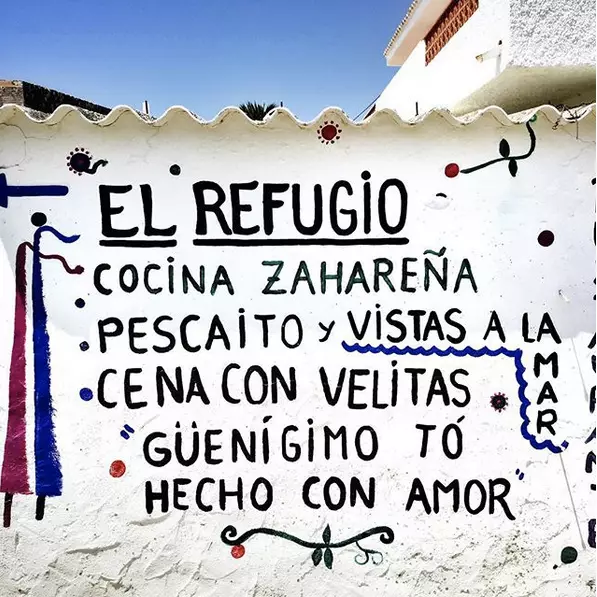 EL REFUGIO
COCINA ZAHAREÑA
PESCAITO y VISTAS A LA
MAR
CENA CON VELITAS
"GÜENÍGIMO TÓ
HECHO CON AMOR"